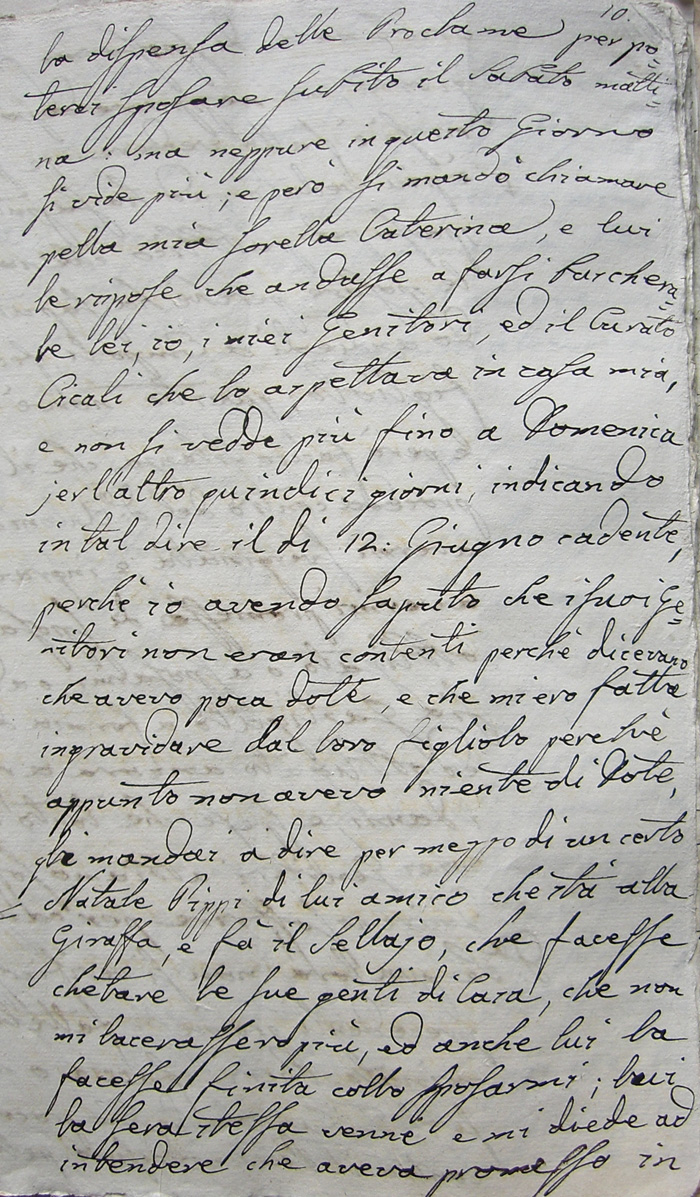 10.
la dispensa delle Proclame per po=
terci sposare subito il Sabato matti=
na: ma neppure in questo Giorno
si vide più; e però si mandò chiamare
pella mia sorella Caterina, e lui
le rispose che andasse a farsi
te lei, io, i miei Genitori, ed il Curato
Cicali che lo aspettava in casa mia,
e non si vedde più fino a Domenica
jerl'altro quindici giorni, indicando
in tal dire il di 12: Giugno cadente,
perchè io avendo saputo che i suoi Ge=
nitori non eran contenti perchè dicevano
che avevo poca dote, e che mi ero fatta
ingravidare dal loro figliolo perchè
appunto non avevo niente di Dote,
gli mandai a dire per mezzo di un certo
Natale Pippi di lui amico che stà alla
Giraffa, e fà il Sellajo, che facesse
chetare le sue genti di Casa, che non
mi lacerassero più, ed anche lui la
facesse finita collo sposarmi; lui
la sera stessa venne e mi diede ad
intendere che aveva promesso in